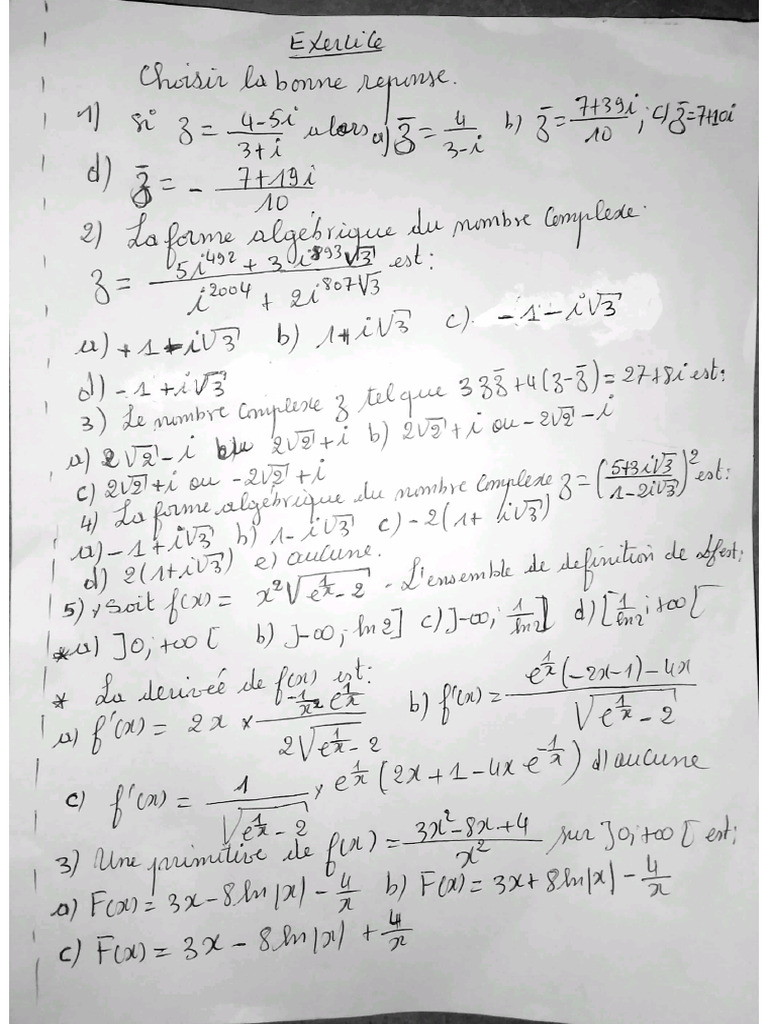 Exercice
Choisir la bonne reponse.
1) Si z = (4-5i)/(3+i) alors a) z̄ = 4/(3-i) b) z̄ = (7+39i)/10 ; c) z̄ = 7+10i
d) z̄ = - (7+19i)/10
2) La forme algébrique du nombre complexe
z = (5i^492 + 3i^893 √3)/(i^2004 + 2i^807 √3) est:
a) +1+i√3 b) 1+i√3 c) -1-i√3
d) -1+i√3
3) Le nombre complexe z tel que 3zz̄+4(z-z̄) = 27+8i est:
a) 2√2-i ou 2√2+i b) 2√2+i ou -2√2-i
c) 2√2+i ou -2√2+i
4) La forme algébrique du nombre complexe z = ((5+3i√3)/(1-2i√3))² est:
a) -1+i√3 b) 1-i√3 c) -2(1+i√3)
d) 2(1+i√3) e) aucune.
5) Soit f(x) = x²√(e^(1/x) - 2) - L'ensemble de definition de f est:
* a) ]0; +∞[ b) ]-∞; -ln2] c) ]-∞; 1/ln2] d) [1/ln2; +∞[
* La derivée de f(x) est:
a) f'(x) = 2x × (-1/x² e^(1/x))/(2√(e^(1/x) - 2)) b) f'(x) = (e^(1/x)(-2x-1)-4x)/√(e^(1/x) - 2)
c) f'(x) = 1/√(e^(1/x) - 2) × e^(1/x)(2x+1-4x e^(-1/x)) d) aucune
3) Une primitive de f(x) = (3x²-8x+4)/x² sur ]0; +∞[ est:
a) F(x) = 3x-8ln|x| - 4/x b) F(x) = 3x+8ln|x| - 4/x
c) F(x) = 3x-8ln|x| + 4/x